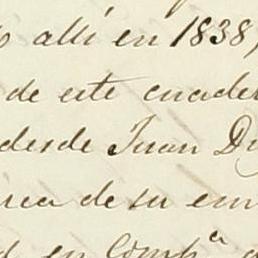 allí en 1838,
de este cuader
desde Juan D
rca de su em
en Comp.ª